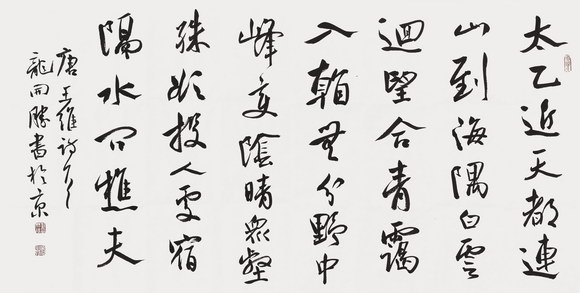 太乙近天都連
山到海隅白雲
迴望合青靄
入看無分野中
峰變陰晴衆壑
殊欲投人處宿
隔水問樵夫
唐王維詩
龍開勝書於京